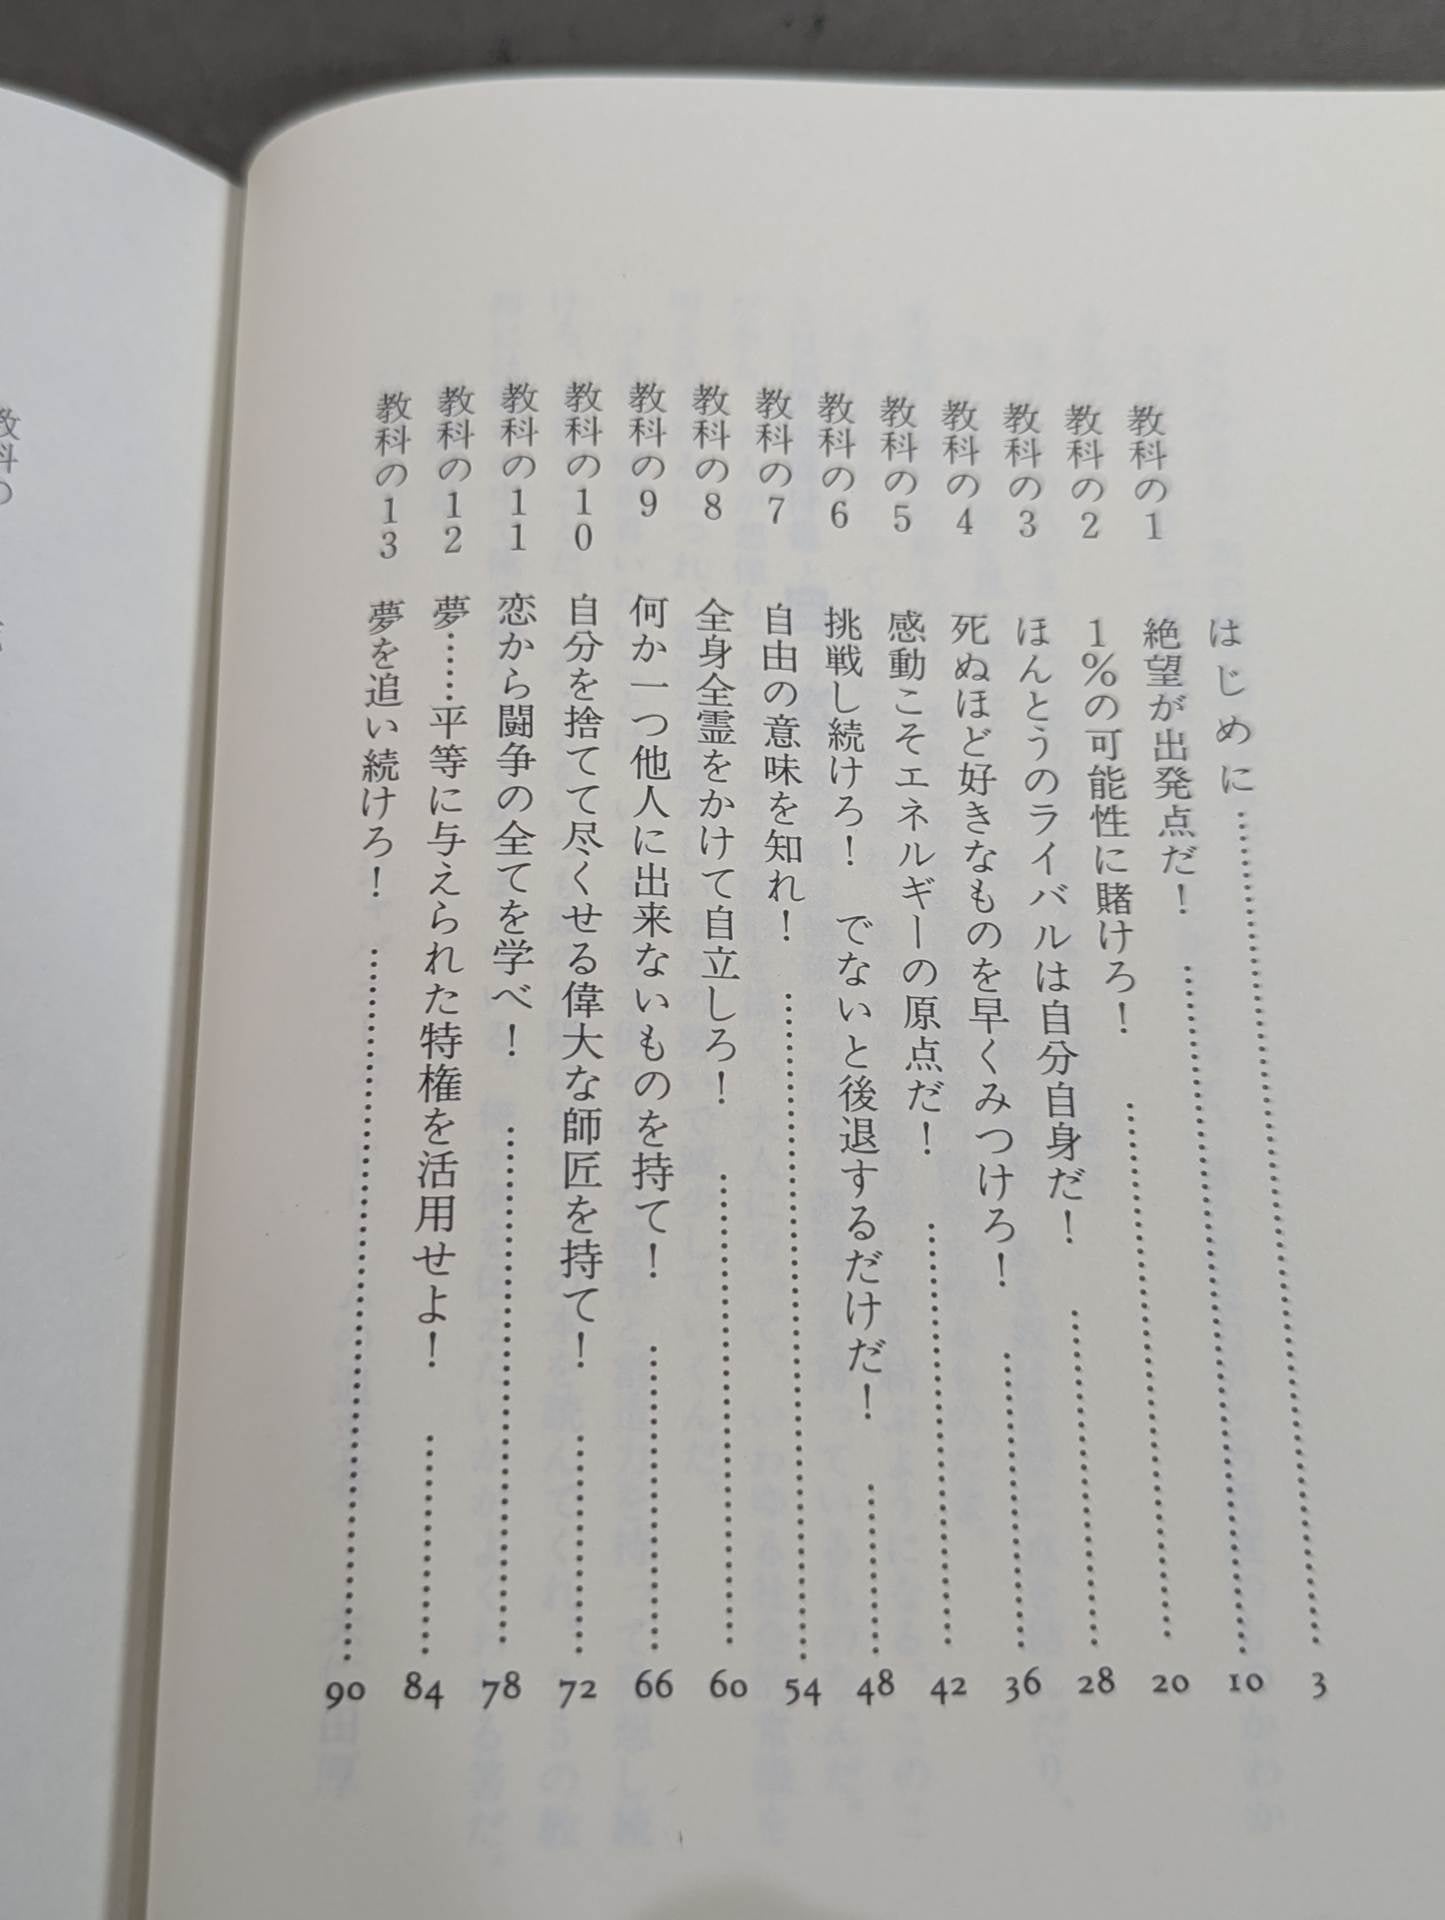 はじめに……………………………………3
教科の1　絶望が出発点だ！……………………………10
教科の2　1％の可能性に賭けろ！……………………20
教科の3　ほんとうのライバルは自分自身だ！…………28
教科の4　死ぬほど好きなものを早くみつけろ！…………36
教科の5　感動こそエネルギーの原点だ！………………42
教科の6　挑戦し続けろ！　でないと後退するだけだ！………48
教科の7　自由の意味を知れ！…………………………54
教科の8　全身全霊をかけて自立しろ！…………………60
教科の9　何か一つ他人に出来ないものを持て！…………66
教科の10　自分を捨てて尽くせる偉大な師匠を持て！………72
教科の11　恋から闘争の全てを学べ！……………………78
教科の12　夢……平等に与えられた特権を活用せよ！………84
教科の13　夢を追い続けろ！……………………………90
教科の